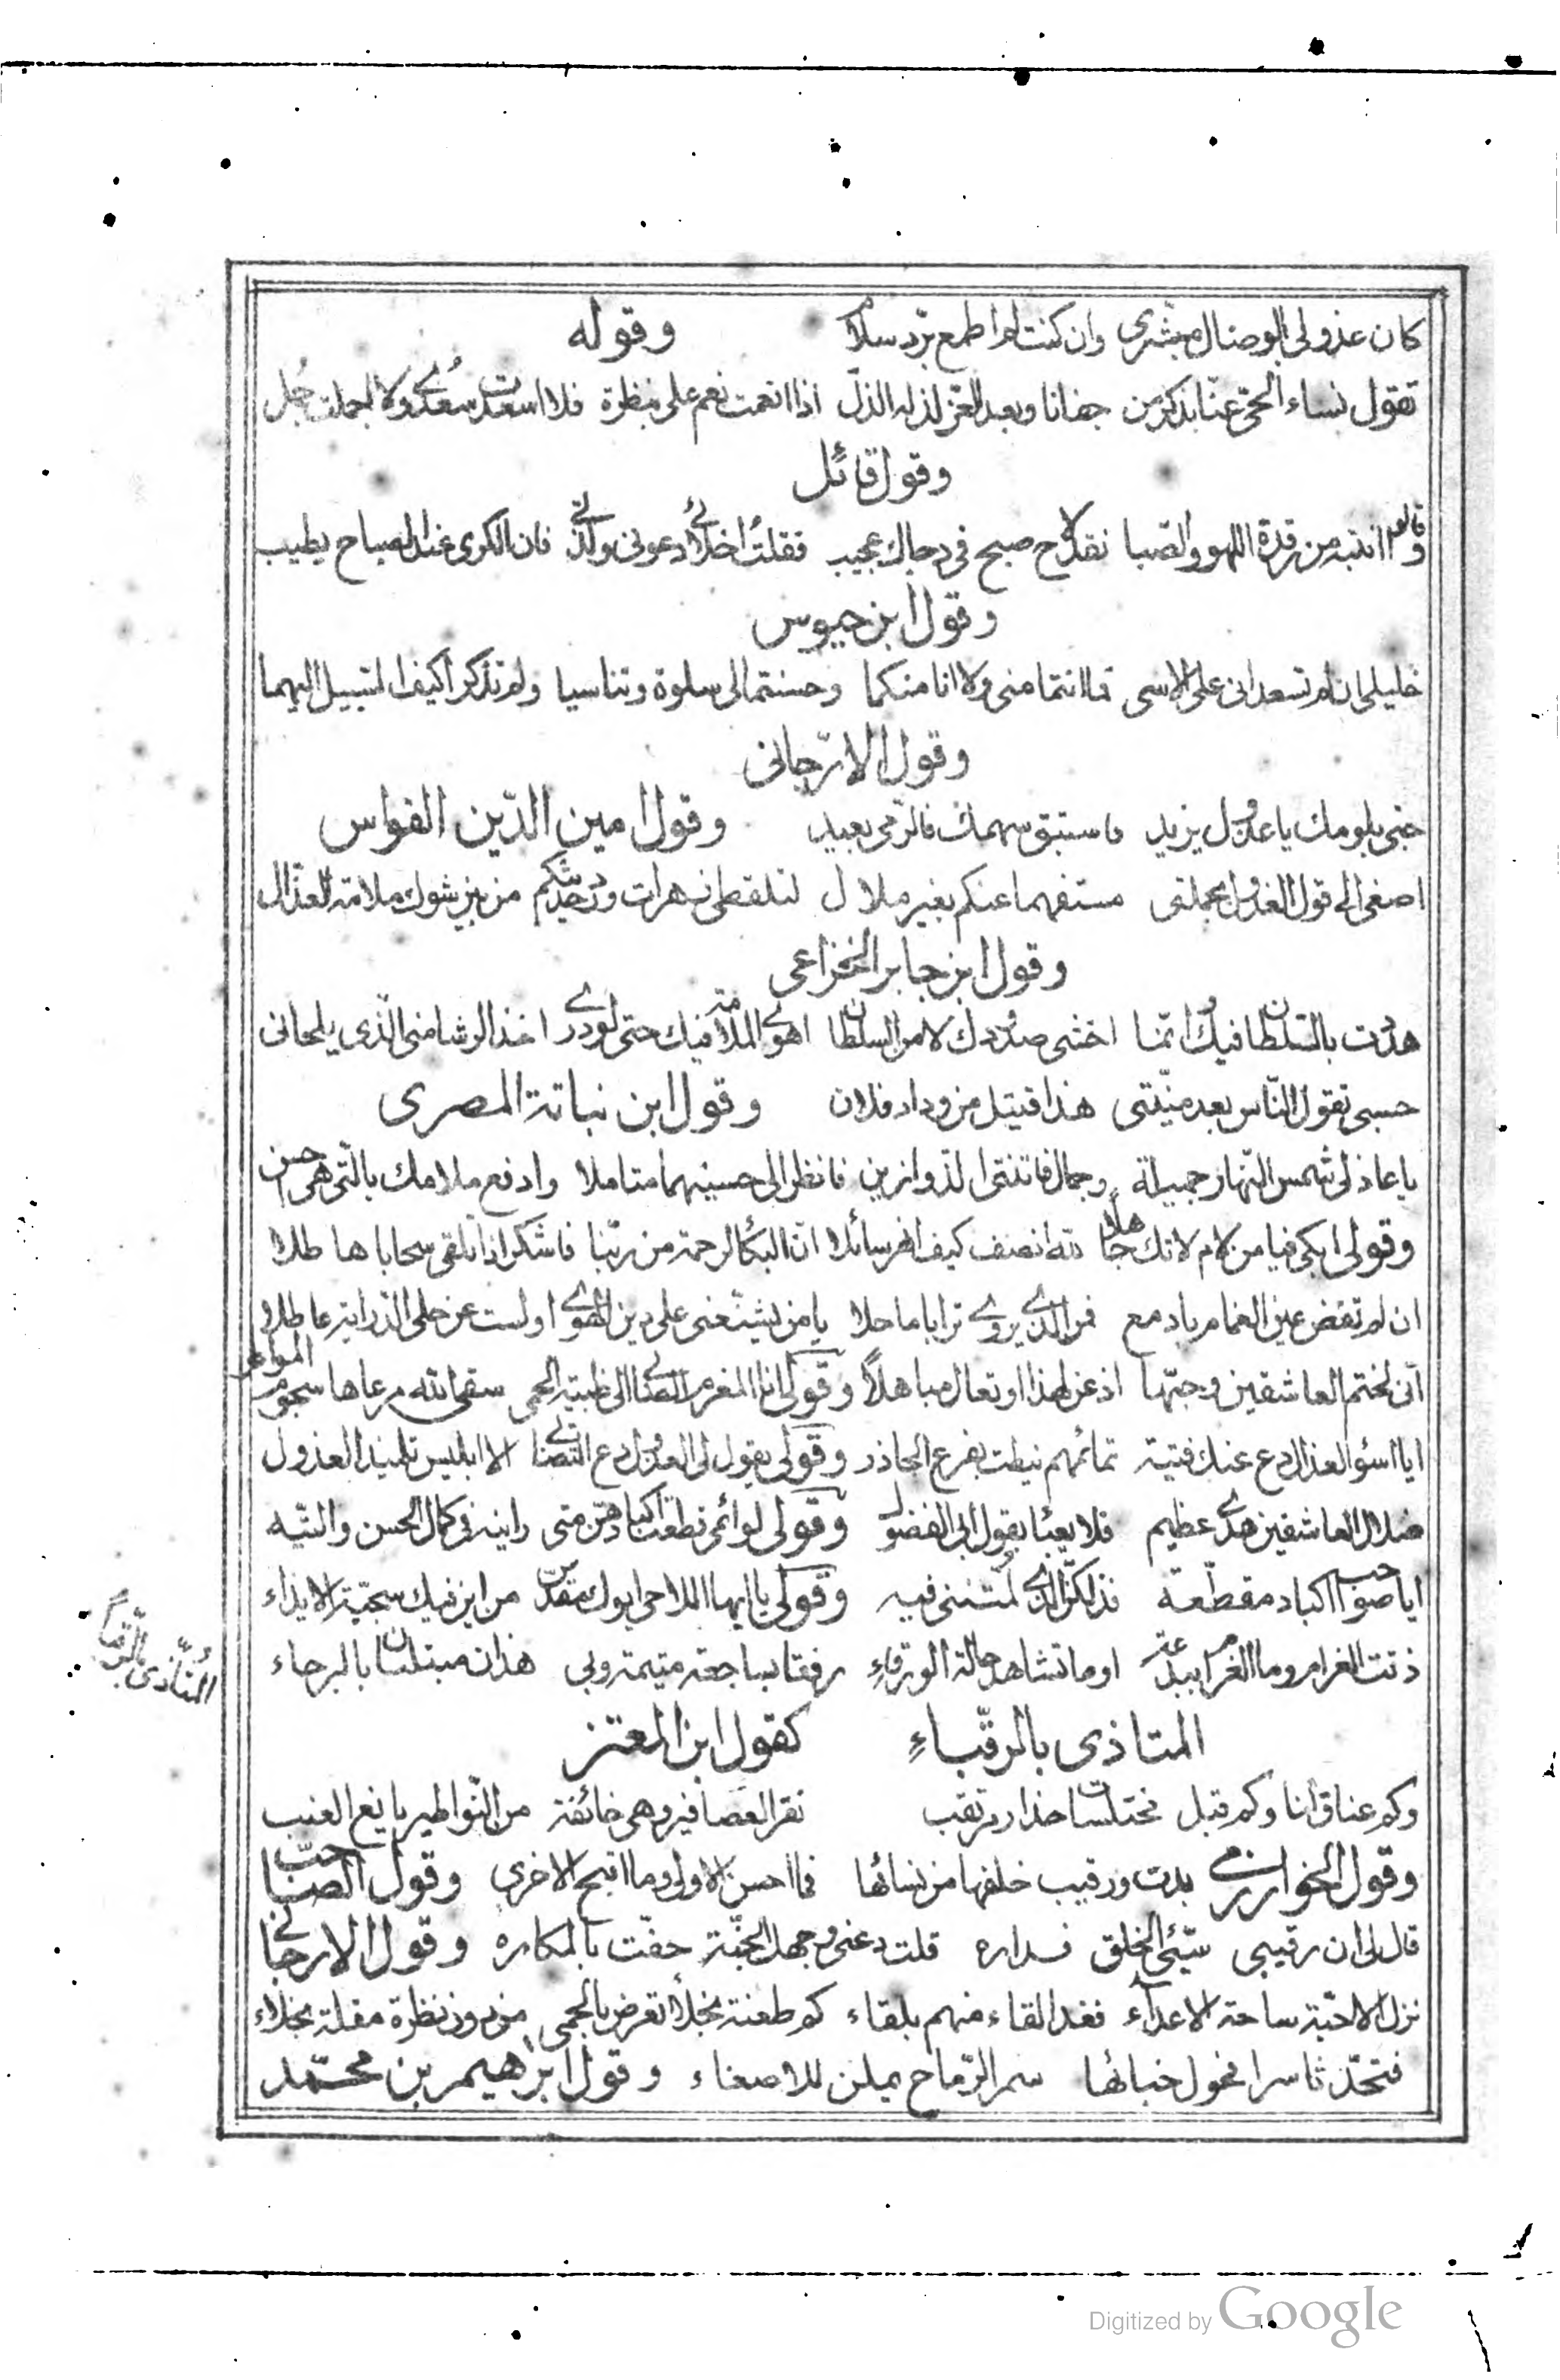 كان عذولى بالوصال مبشرى وان كنت لم اطمع برد سلام وقوله
تقول نساء الحى عنا بذكر من جفانا وبعد العز لذ له الذل اذا انعمت نعم على بنظرة فلا اسعدت سعدى ولا اجملت جمل
وقول قائل
وقالوا انتبه من رقدة اللهو والصبا فقد لاح صبح فى دجاك عجيب فقلت اخلائى دعونى ولذتى فان الكرى عند الصباح يطيب
وقول ابن حيوس
خليلى ان لم تسعدانى على الاسى فما انتما منى ولا انا منكما وحسنتما لى سلوة وتناسيا ولم تذكرا كيف السبيل اليهما
وقول الارّجانى
حبى بلومك يا عذول يزيد فاستبق سهمك فالرمى بعيد وقول امين الدّين القواس
اصغى الى قول العذول بجملتى مستفهما عنكم بغير ملال لتلقطى زهرات ورد حديثكم من بين شوك ملامة العذال
وقول ابن جابر الخزاعى
هددت بالسلطان فيك وانما اخشى صدودك لا من السلطان اهوى الملامة فيك حتى لو درى اخذ الرشا منى الذى يلحانى
حسبى تقول الناس بعد منيتى هذا قتيل من وداد فلان وقول ابن نباتة المصرى
يا عاذلى شمس النهار جميلة وجمال فاتنتى الذ وازين فانظر الى حسنيهما متاملا وادفع ملامك بالتى هى احسن
وقولى ابكى فيا من لام لا تك جاهلا لله انصف كيف انهر سائلا ان البكا لرحمة من ربنا فاشكر اذا تلقى سحابا هاطلا
ان لم تفض عين الغمام بادمع فمن الذى يروى ترابا ماحلا يا من يشينغنى على دين الهوى اولست عن حلى الدراية عاطلا
انى لختم العاشقين وجبتها اذعن لهذا او تعال مباهلاً وقولى انا المغرم الصنانى الى ظبية الحمى سقى الله مرعاها سجوم المواطر
ايا اسؤ العذال دع عنك فتية تمائمهم نيطت بفرع الجاذر وقولى يقول لى العذول دع التصابى الا ابليس تلميذ العذول
ضلال العاشقين هدى عظيم فلا يعبئا بقول ابى الفضول وقولى لوائمى قطعت اكبادهن متى راينه فى كمال الحسن والتيه
ايا صواحب اكباد مقطعة فذلكن الذى لمتننى فيه وقولى يا ايها اللاحى ابوك مقدس من اين فيك سجية الايذاء
ذقت الغرام وما الغرام ببدعة اوما تشاهد حالة الورقاء رفقا بساجعة متيمة وبى هذان مبتليان بالبرحاء
المتاذى بالرقباء كقول ابن المعتز
وكم عناق لنا وكم قبل مختلسات حذار مرتقب نقر العصافير وهى خائفة من النواطير يانع العنب
وقول الخوارزمى بدت ورقيب خلفها من نسائها فما احسن الاولى وما اقبح الاخرى وقول الصاحب
قال لى ان رقيبى سيئ الخلق فداره قلت دعنى وجهك الجنة حفت بالمكاره وقول الارجانى
نزل الاحبة ساحة الاعدآء فغدا لقاء منهم بلقاء كم طعنة نجلآ تعرض بالحمى من دون نظرة مقلة نجلاء
فتحدثا سرا فحول خبائها سمر الرماح يملن للاصغاء وقول ابرهيم بن محمّد
المتأذى بالرقباء
Digitized by Google